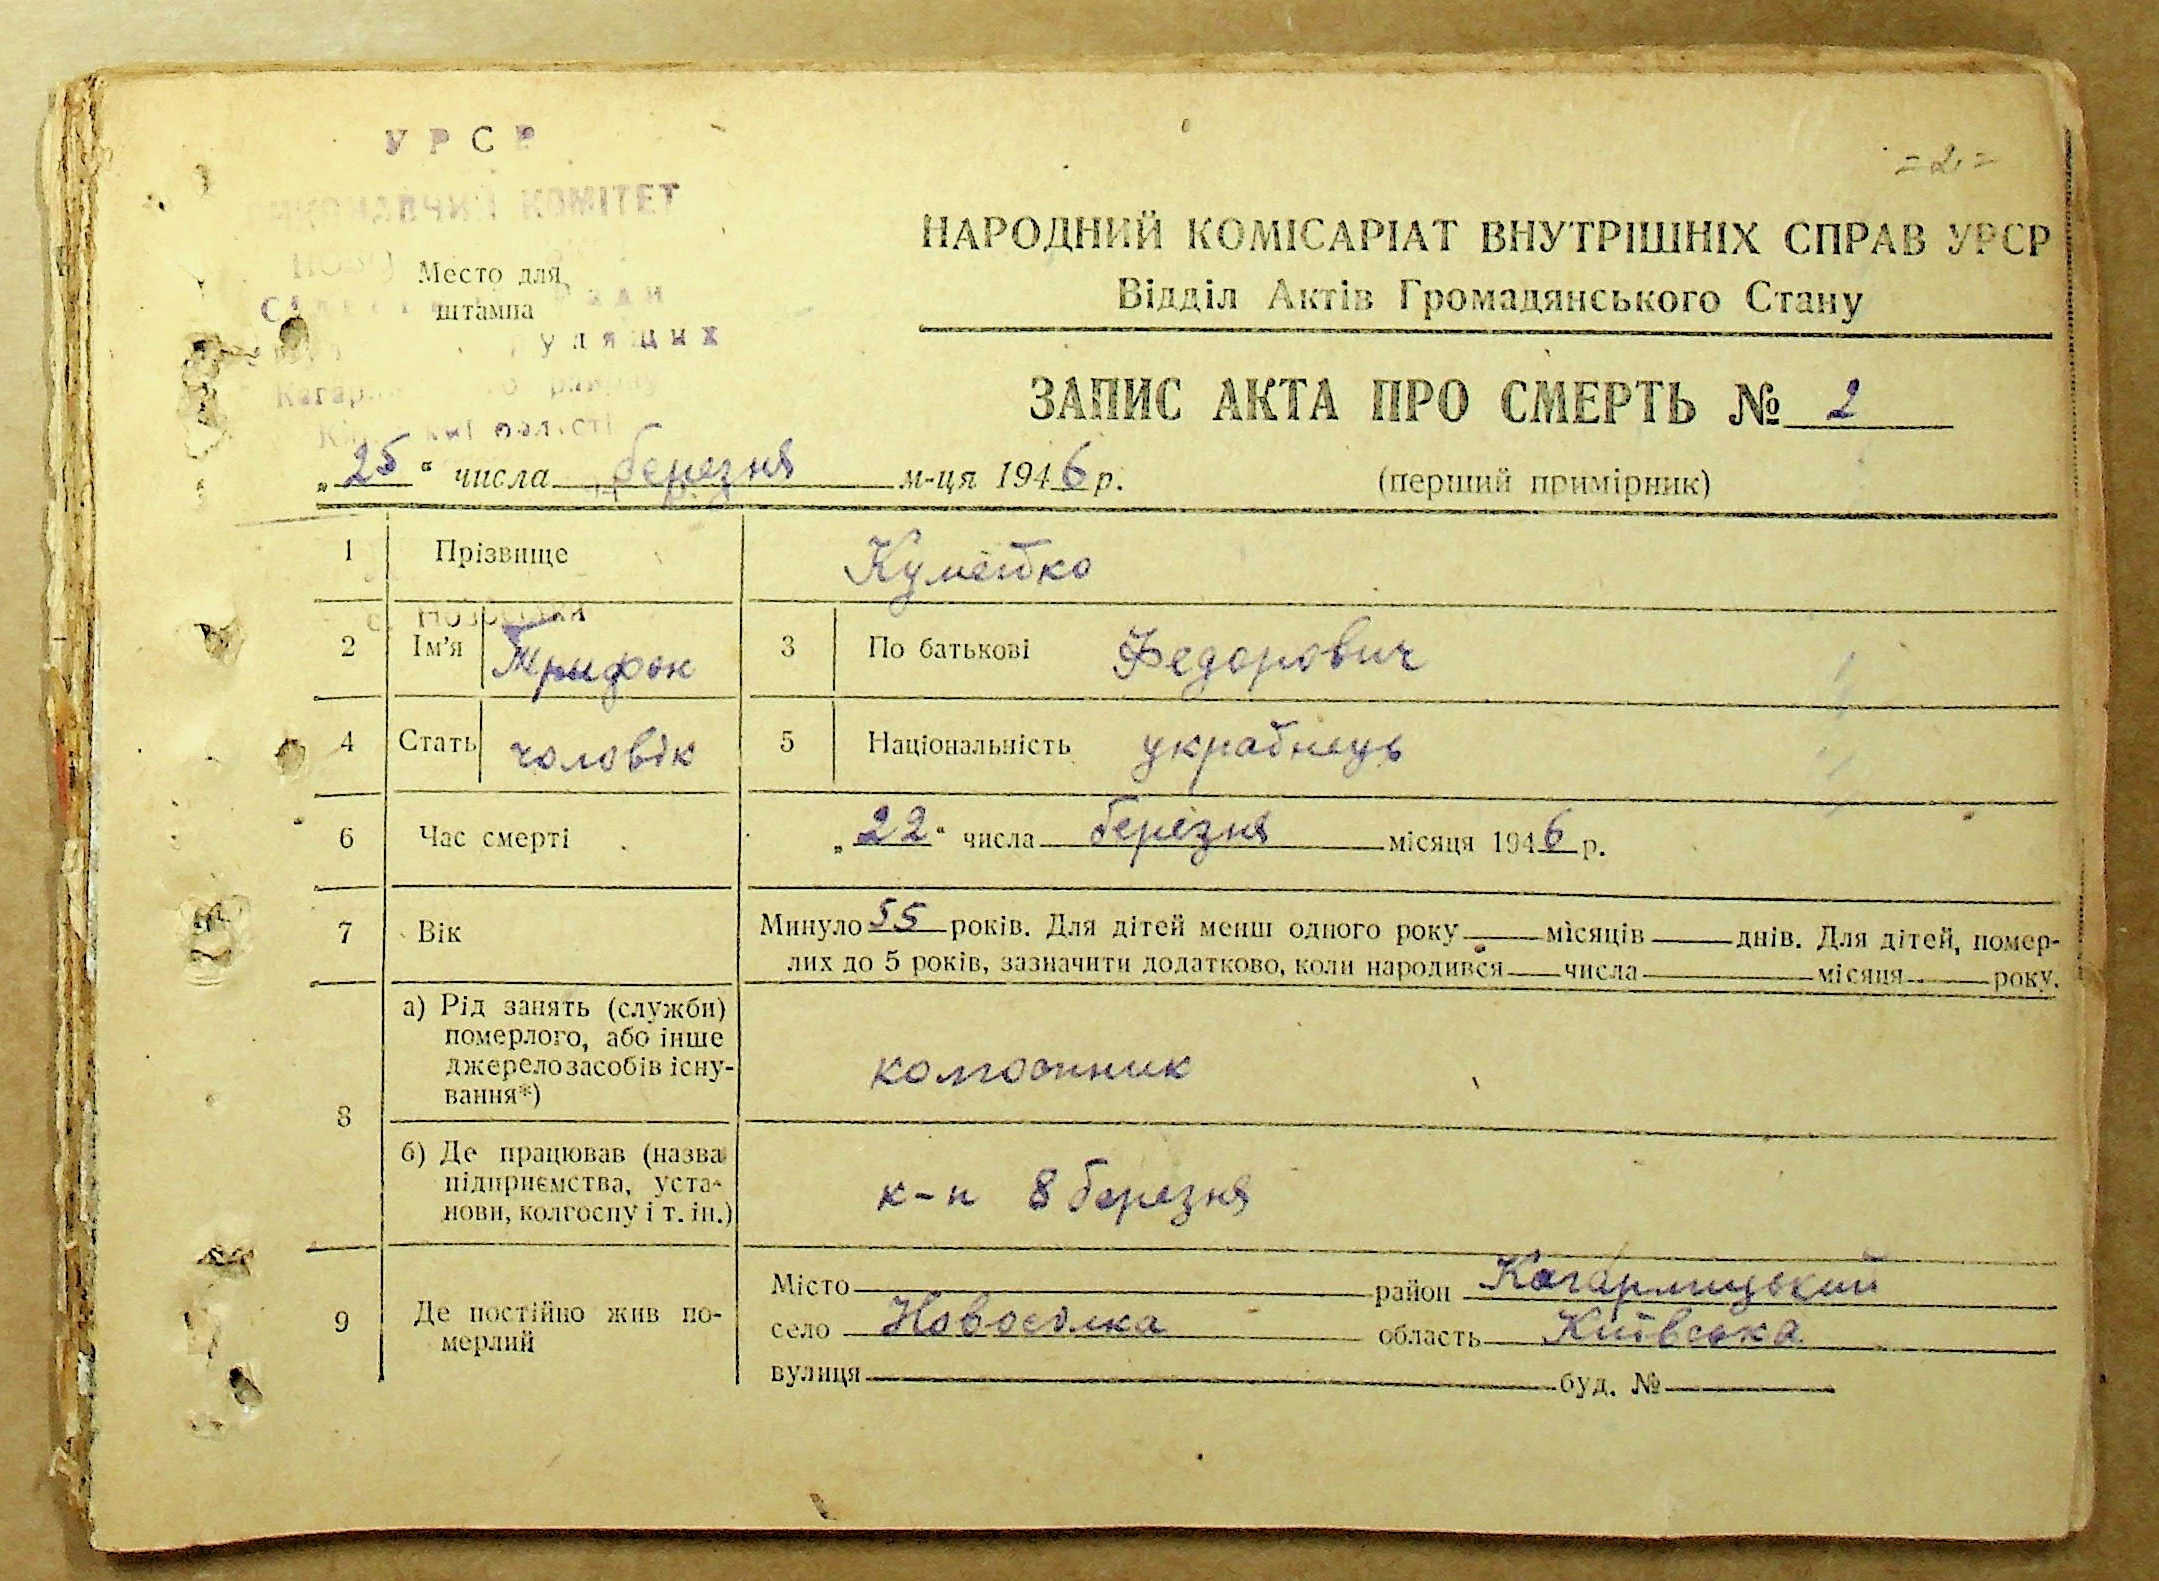 УРСР
ВИКОНАВЧИЙ КОМІТЕТ
Место для
штампа
= 2 =
НАРОДНИЙ КОМІСАРІАТ ВНУТРІШНІХ СПРАВ УРСР
Відділ Актів Громадянського Стану
ЗАПИС АКТА ПРО СМЕРТЬ № 2
„25“ числа березня м-ця 1946 р.
(перший примірник)
1 Прізвище Кумейко
2 Ім'я Трифон 3 По батькові Федорович
4 Стать чоловік 5 Національність українець
6 Час смерті „22“ числа березня місяця 1946 р.
7 Вік Минуло 55 років. Для дітей менш одного року місяців днів. Для дітей, помер-
лих до 5 років, зазначити додатково, коли народився числа місяця року.
8 а) Рід занять (служби)
померлого, або інше
джерело засобів існу-
вання*)
колгоспник
б) Де працював (назва
підприємства, уста-
нови, колгоспу і т. ін.)
к-п 8 березня
9 Де постійно жив по-
мерлий
Місто район Кагарлицький
село Новосілка область Київська
вулиця буд. №